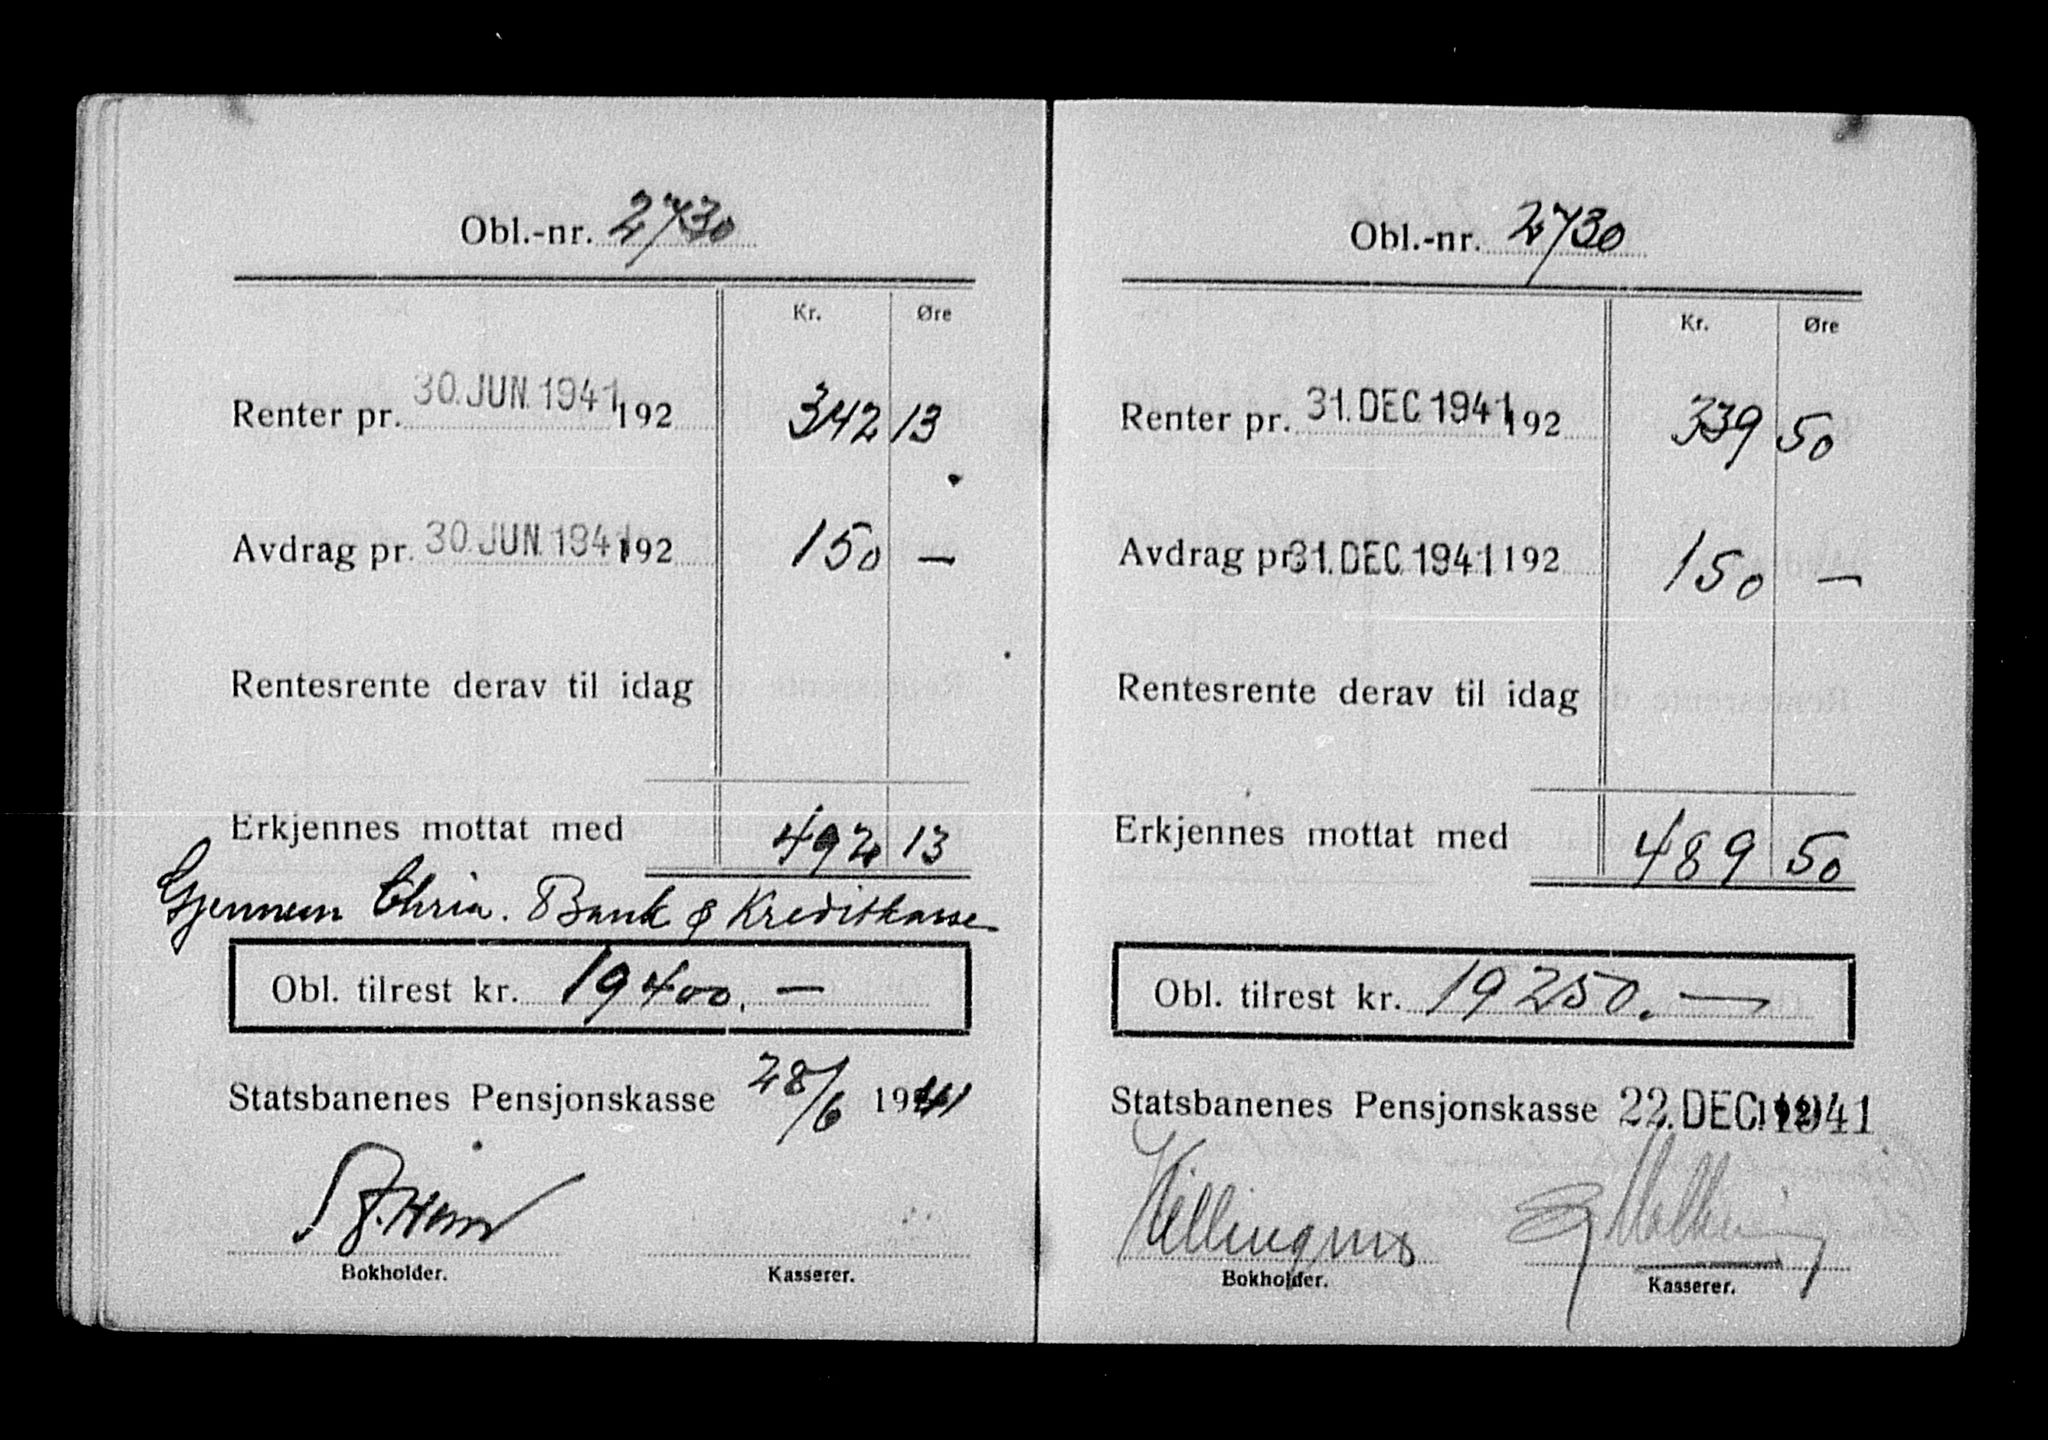 Obl.-nr. 2730
Kr. Øre
Renter pr. 30. JUN. 1941 192 342 13
Avdrag pr. 30. JUN. 1941 192 150 —
Rentesrente derav til idag
Erkjennes mottat med 492 13
Gjennem Chria. Bank & Kreditkasse
Obl. tilrest kr. 19400. —
Statsbanenes Pensjonskasse 28/6 1941
Bokholder. Kasserer.
Obl.-nr. 2730
Kr. Øre
Renter pr. 31. DEC 1941 192 339 50
Avdrag pr. 31. DEC. 1941 192 150 —
Rentesrente derav til idag
Erkjennes mottat med 489 50
Obl. tilrest kr. 19250. —
Statsbanenes Pensjonskasse 22. DEC. 1941
Bokholder. Kasserer.